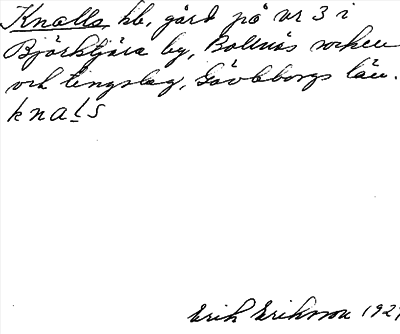 Knalls, hb, gård på nr 3 i
Björktjära by, Bollnäs socken
och tingslag, Gävleborgs län.
knaḷs
Erik Eriksson 1927